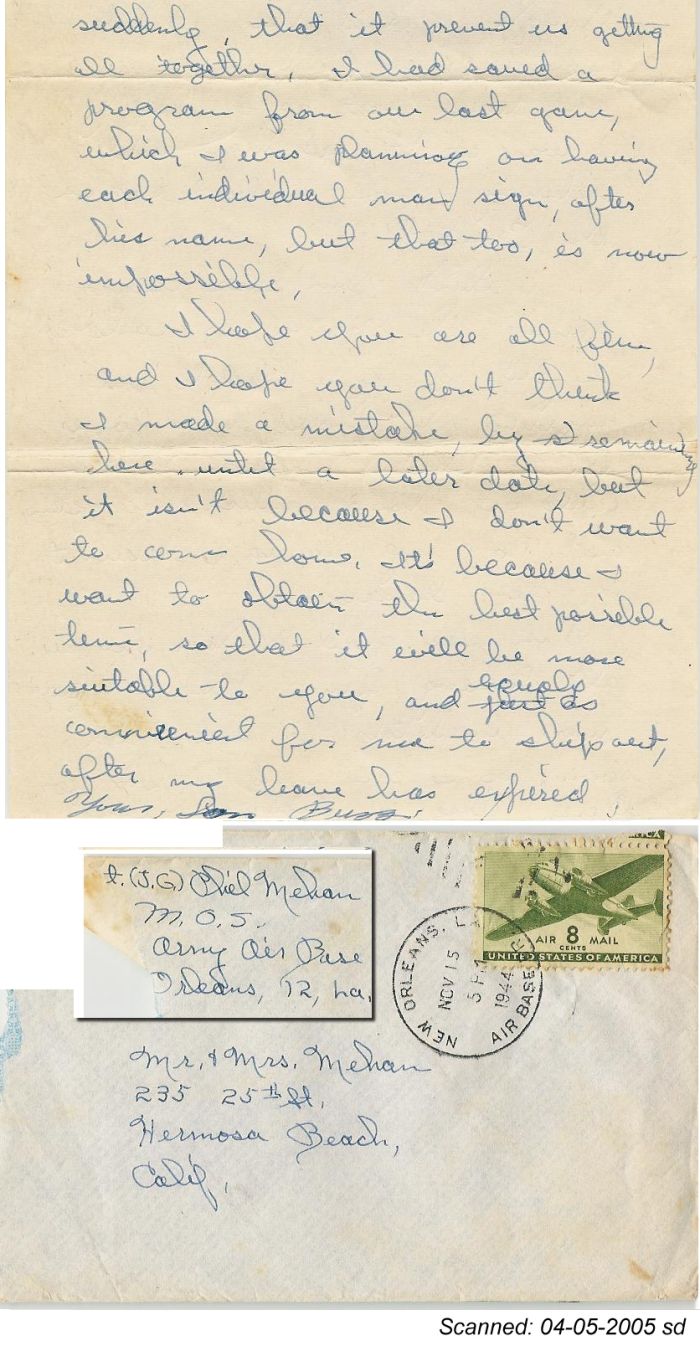 suddenly, that it prevent us getting
all together, I had saved a
program from our last game,
which I was planning on having
each individual man sign, after
his name, but that too, is now
impossible,
I hope you are all fine,
and I hope you don't think
I made a mistake, by remaining
here until a later date, but
it isn't because I don't want
to come home. It's because I
want to obtain the best possible
time, so that it will be more
suitable to you, and equaly
just as
convenient for me to ship out,
after my leave has expired.
Your, Son
t. (J.G.) Phil Mehan
M.O.S.
Army Air Base
Orleans, 12, La.
NEW ORLEANS, L
NOV 15
5 PM
1944
AIR BASE
AIR 8 MAIL
CENTS
UNITED STATES OF AMERICA
Mr. & Mrs. Mehan
235 25th St.
Hermosa Beach,
Calif,
Scanned: 04-05-2005 sd